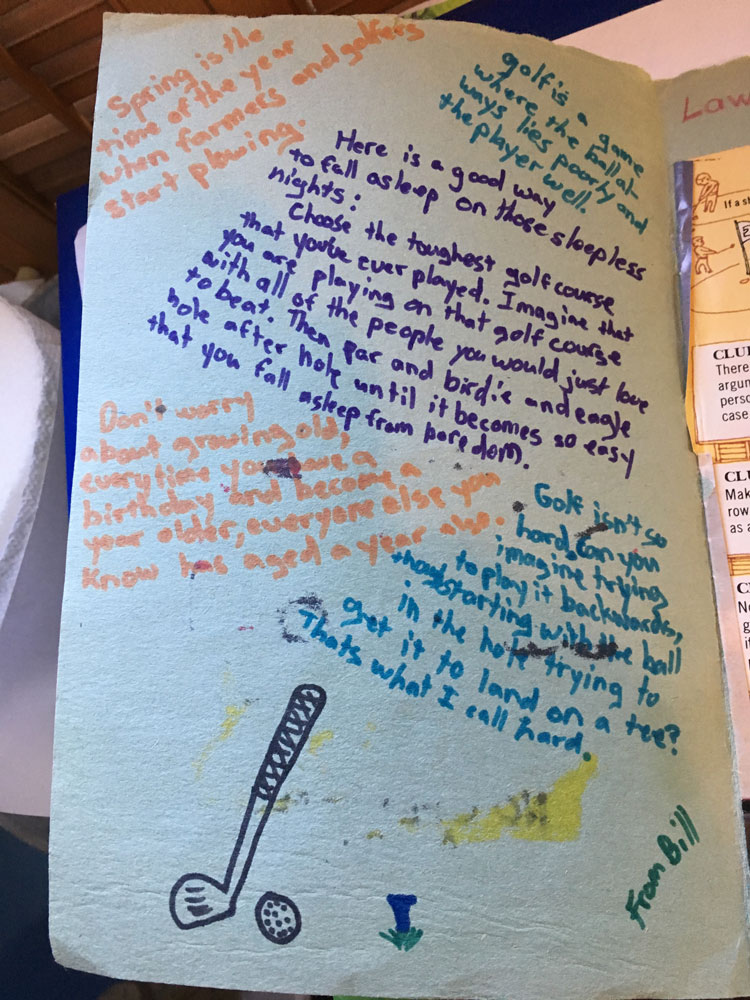 Spring is the
time of the year
when farmers and golfers
start plowing.
golf is a game
where the ball al-
ways lies poorly and
the player well.
Here is a good way
to fall asleep on those sleepless
nights:
Choose the toughest golf course
that you've ever played. Imagine that
you are playing on that golf course
with all of the people you would just love
to beat. Then par and birdie and eagle
hole after hole until it becomes so easy
that you fall asleep from boredom.
Don't worry
about growing old,
every time you have a
birthday and become a
year older, everyone else you
know has aged a year also.
Golf isn't so
hard. Can you
imagine trying
to play it backwards,
starting with the ball
in the hole trying to
get it to land on a tee?
Thats what I call hard.
From Bill
Law
If a s
CLU
There
argun
perso
case
CLU
Mak
row
as a
C
No
g
it